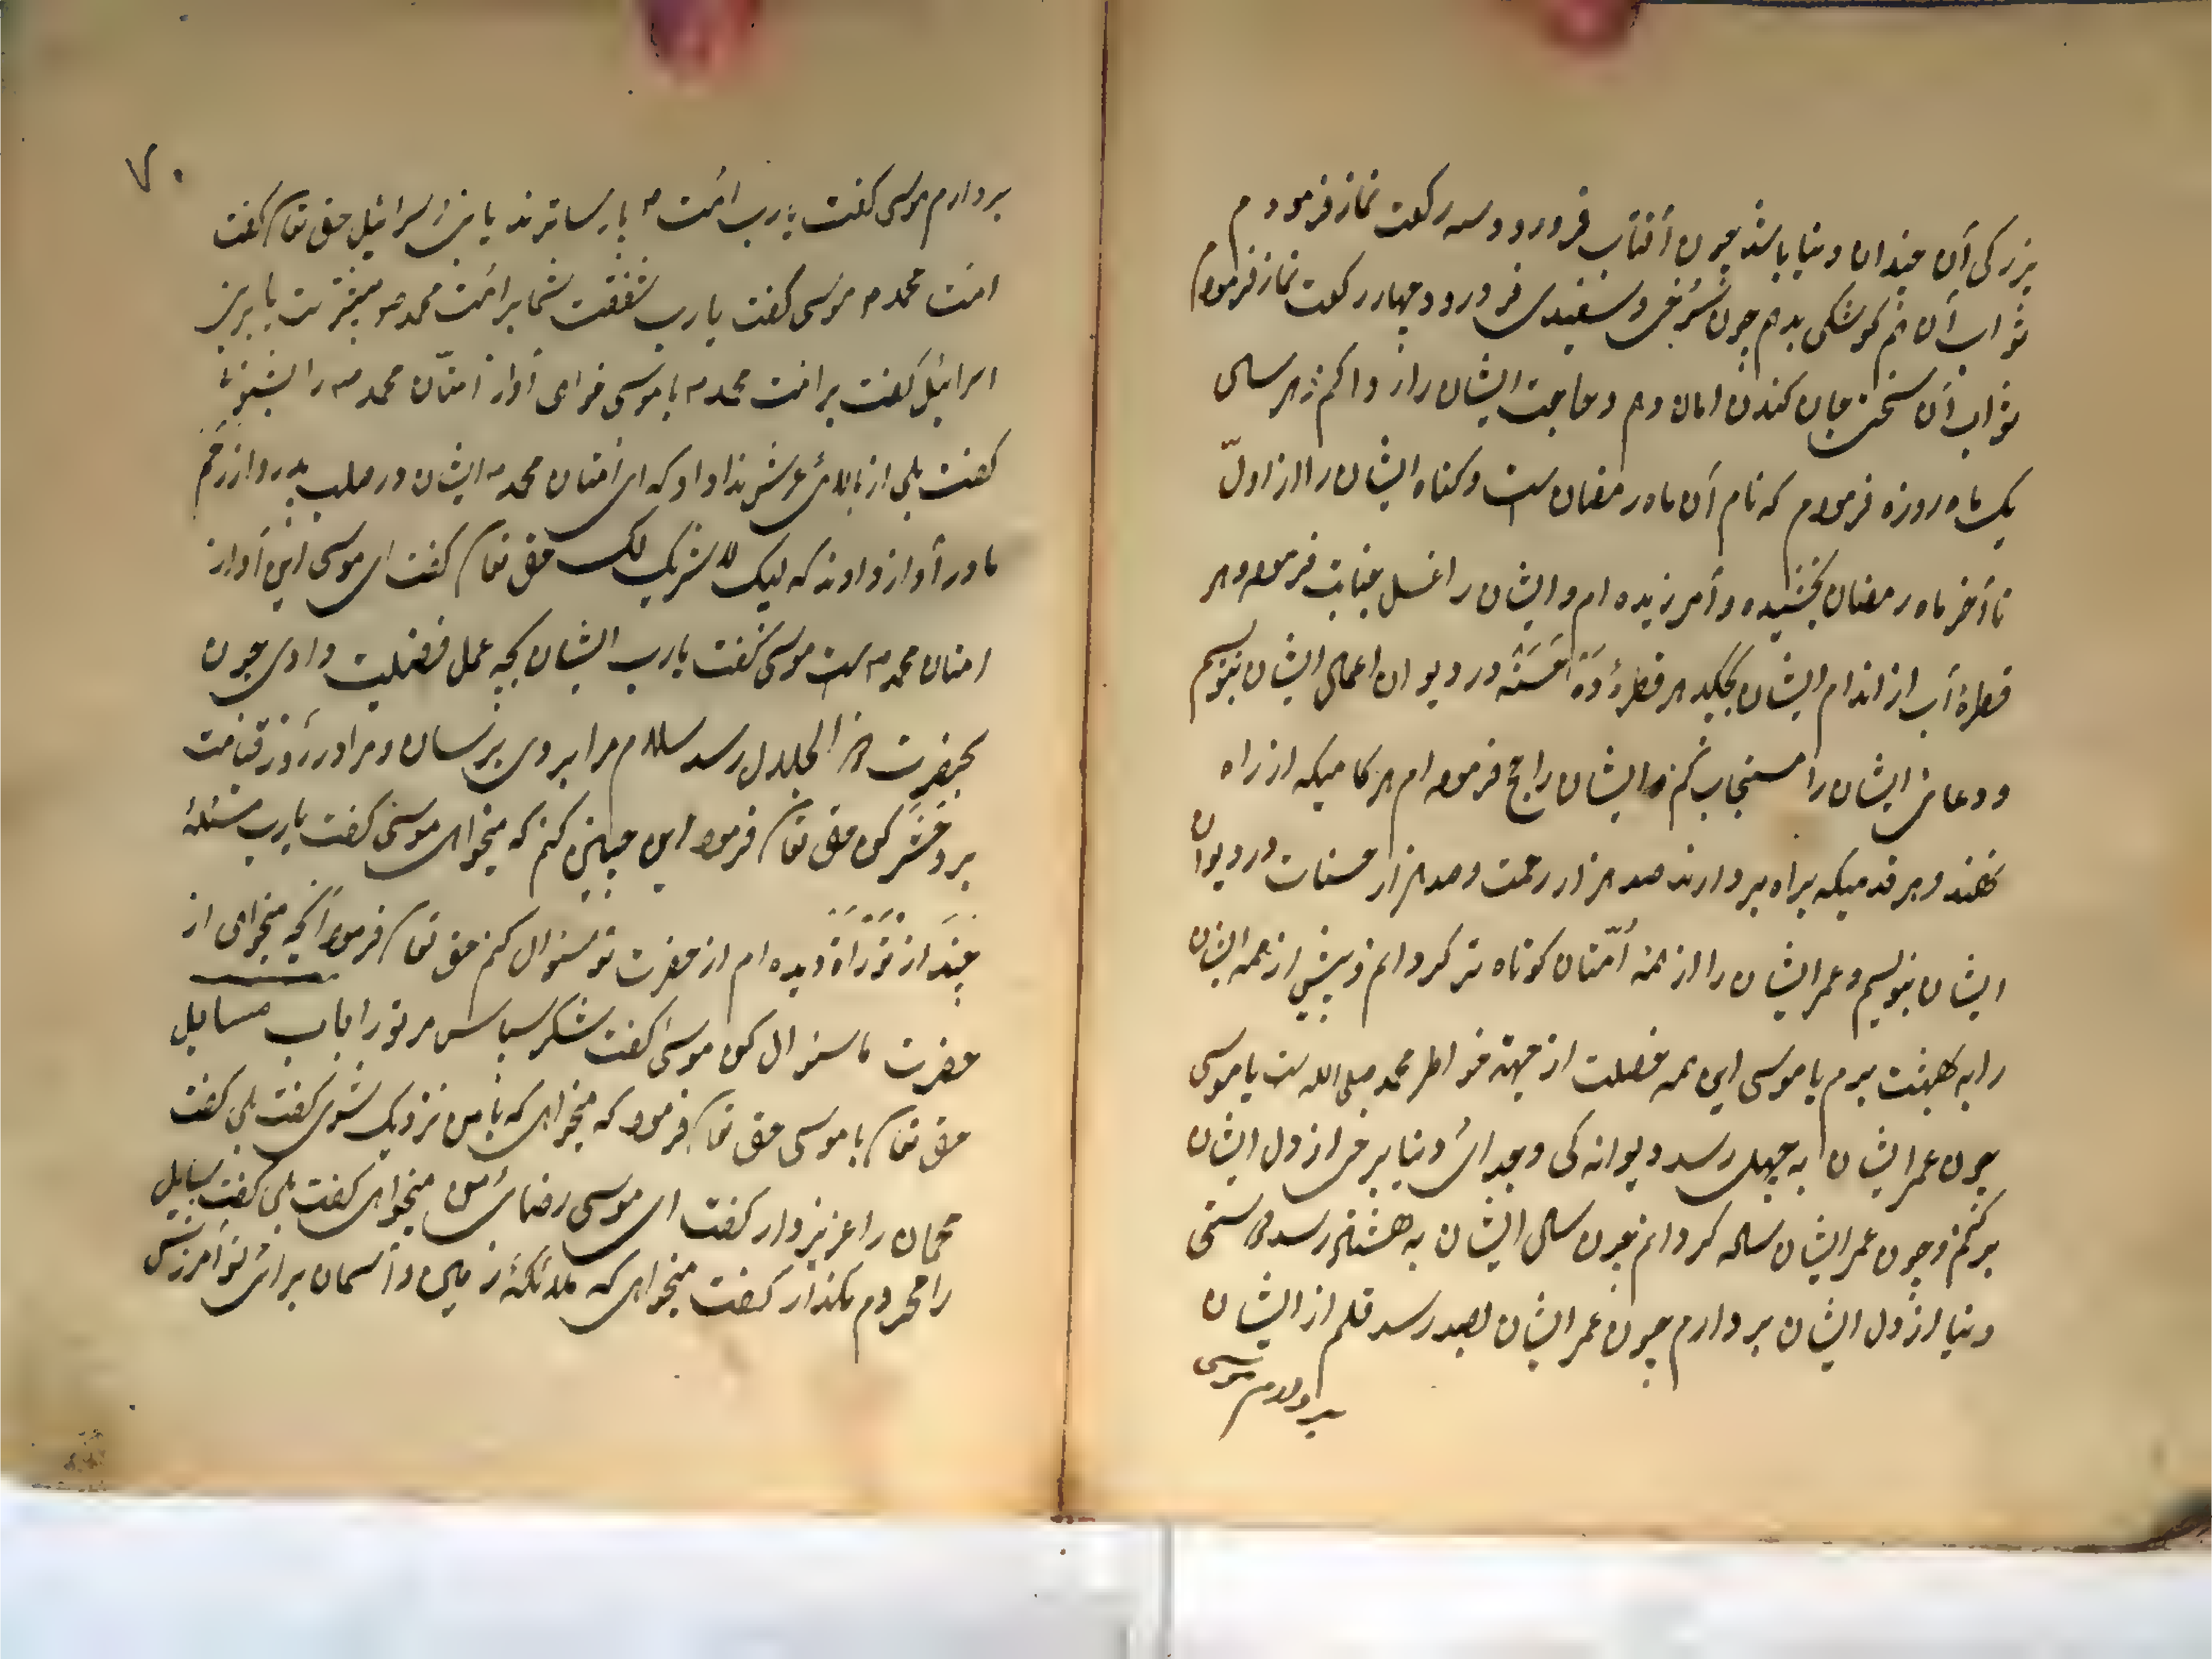 بزرکی آن چندان دنیا باشد چون آفتاب فرو رود و سه رکعت نماز فرمودم
ثواب آن هم کوشکی بدهم چون سرخی و سفیدی فرو رود و چهار رکعت نماز فرمودم
ثواب آن سختی جان کندن امان دهم و حاجت ایشان را روا کنم و هر سالی
یک ماه روزه فرمودم که نام آن ماه رمضان ست و کناه ایشان را از اول
تا آخر ماه رمضان بخشیده و آمرزیده ام و ایشان را غسل جنابت فرموده هر
قطرۀ آب از اندام ایشان بچکید هر قطرۀ ده حسنه در دیوان اعمال ایشان بنویسم
و دعای ایشان را مستجاب کنم و ایشان را حج فرموده ام هر کامیکه از راه
نهند و هر قدمیکه براه بردارند صد هزار رحمت و صد هزار حسنات در دیوان
ایشان بنویسم و عمر ایشان را از همه امّتان کوتاه تر کردانم و پیش از همه ایشان
را به بهشت برم یا موسی این همه فضلت از جهة خواطر محمد صلی الله ست یا موسی
چون عمر ایشان به چهل رسد دیوانه کی و جدائ دنیا برخی از دل ایشان
بر کنم و چون عمر ایشان ساله کردانم چون سال ایشان به هشتاد رسد دوستی
دنیا از دل ایشان بردارم چون عمر ایشان بصد رسد قلم از ایشان
بردارم موسی
۷۰
بردارم موسی کفت یا رب امّت م پارساترند یا بنی اسرائیل حق تعا کفت
امّت محمد م موسی کفت یا رب شفقت شما بر امّت محمد ص بیشتر ست یا بر بنی
اسرائیل کفت بر امّت محمد م یا موسی خواهی آواز امتّان محمد م را بشنوی
کفت بلی از بالای عرش ندا داد که ای امتان محمد م ایشان در صلب پدر و از رحم
مادر آواز دادند که لبیک لا شریک لک حق تعا کفت ای موسی این آواز
امتان محمد م ست موسی کفت یا رب ایشان بچه عمل فضیلت دادی چون
بحضرت ذو الجلال رسد سلام مرا بر وی برسان و مرا در روز قیامت
برو حشر کن حق تعا فرمود این چنین کنم که میخواهی موسی کفت یا رب مسئلۀ
چند از توراة دیده ام از حضرت تو سئوال کنم حق تعا فرمود آنچه میخواهی از
حضرت ما سئوال کن موسی کفت شکر سپاس مر تو را باب مسایل
حق تعا با موسی حق تعا فرمود که میخواهی که با من نزدیک شوی کفت بلی کفت
مهمان را عزیز دار کفت ای موسی رضای من میخواهی کفت بلی کفت سایل
را محروم مکذار کفت میخواهی که ملائکۀ زمین و آسمان برائ تو آمرزش